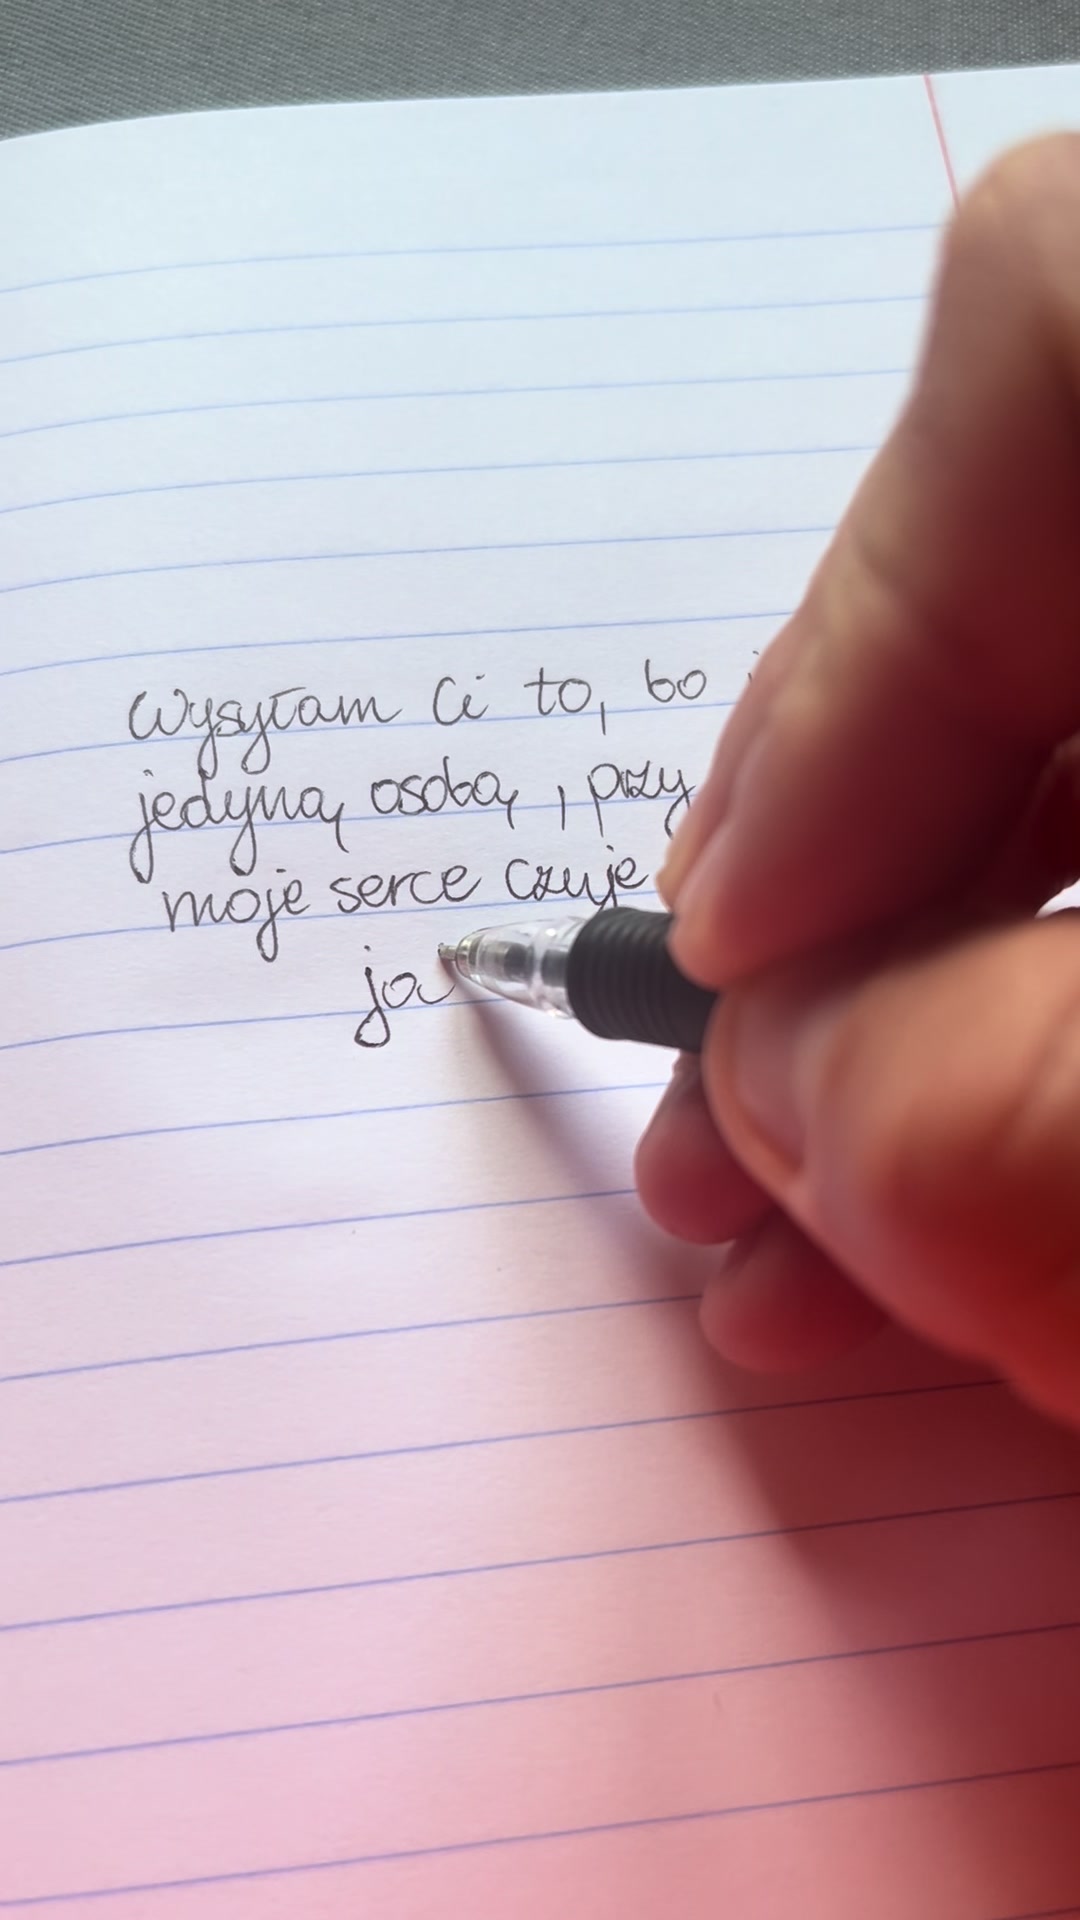 Wysyłam Ci to, bo
jedyną osobą, przy
moje serce czuje